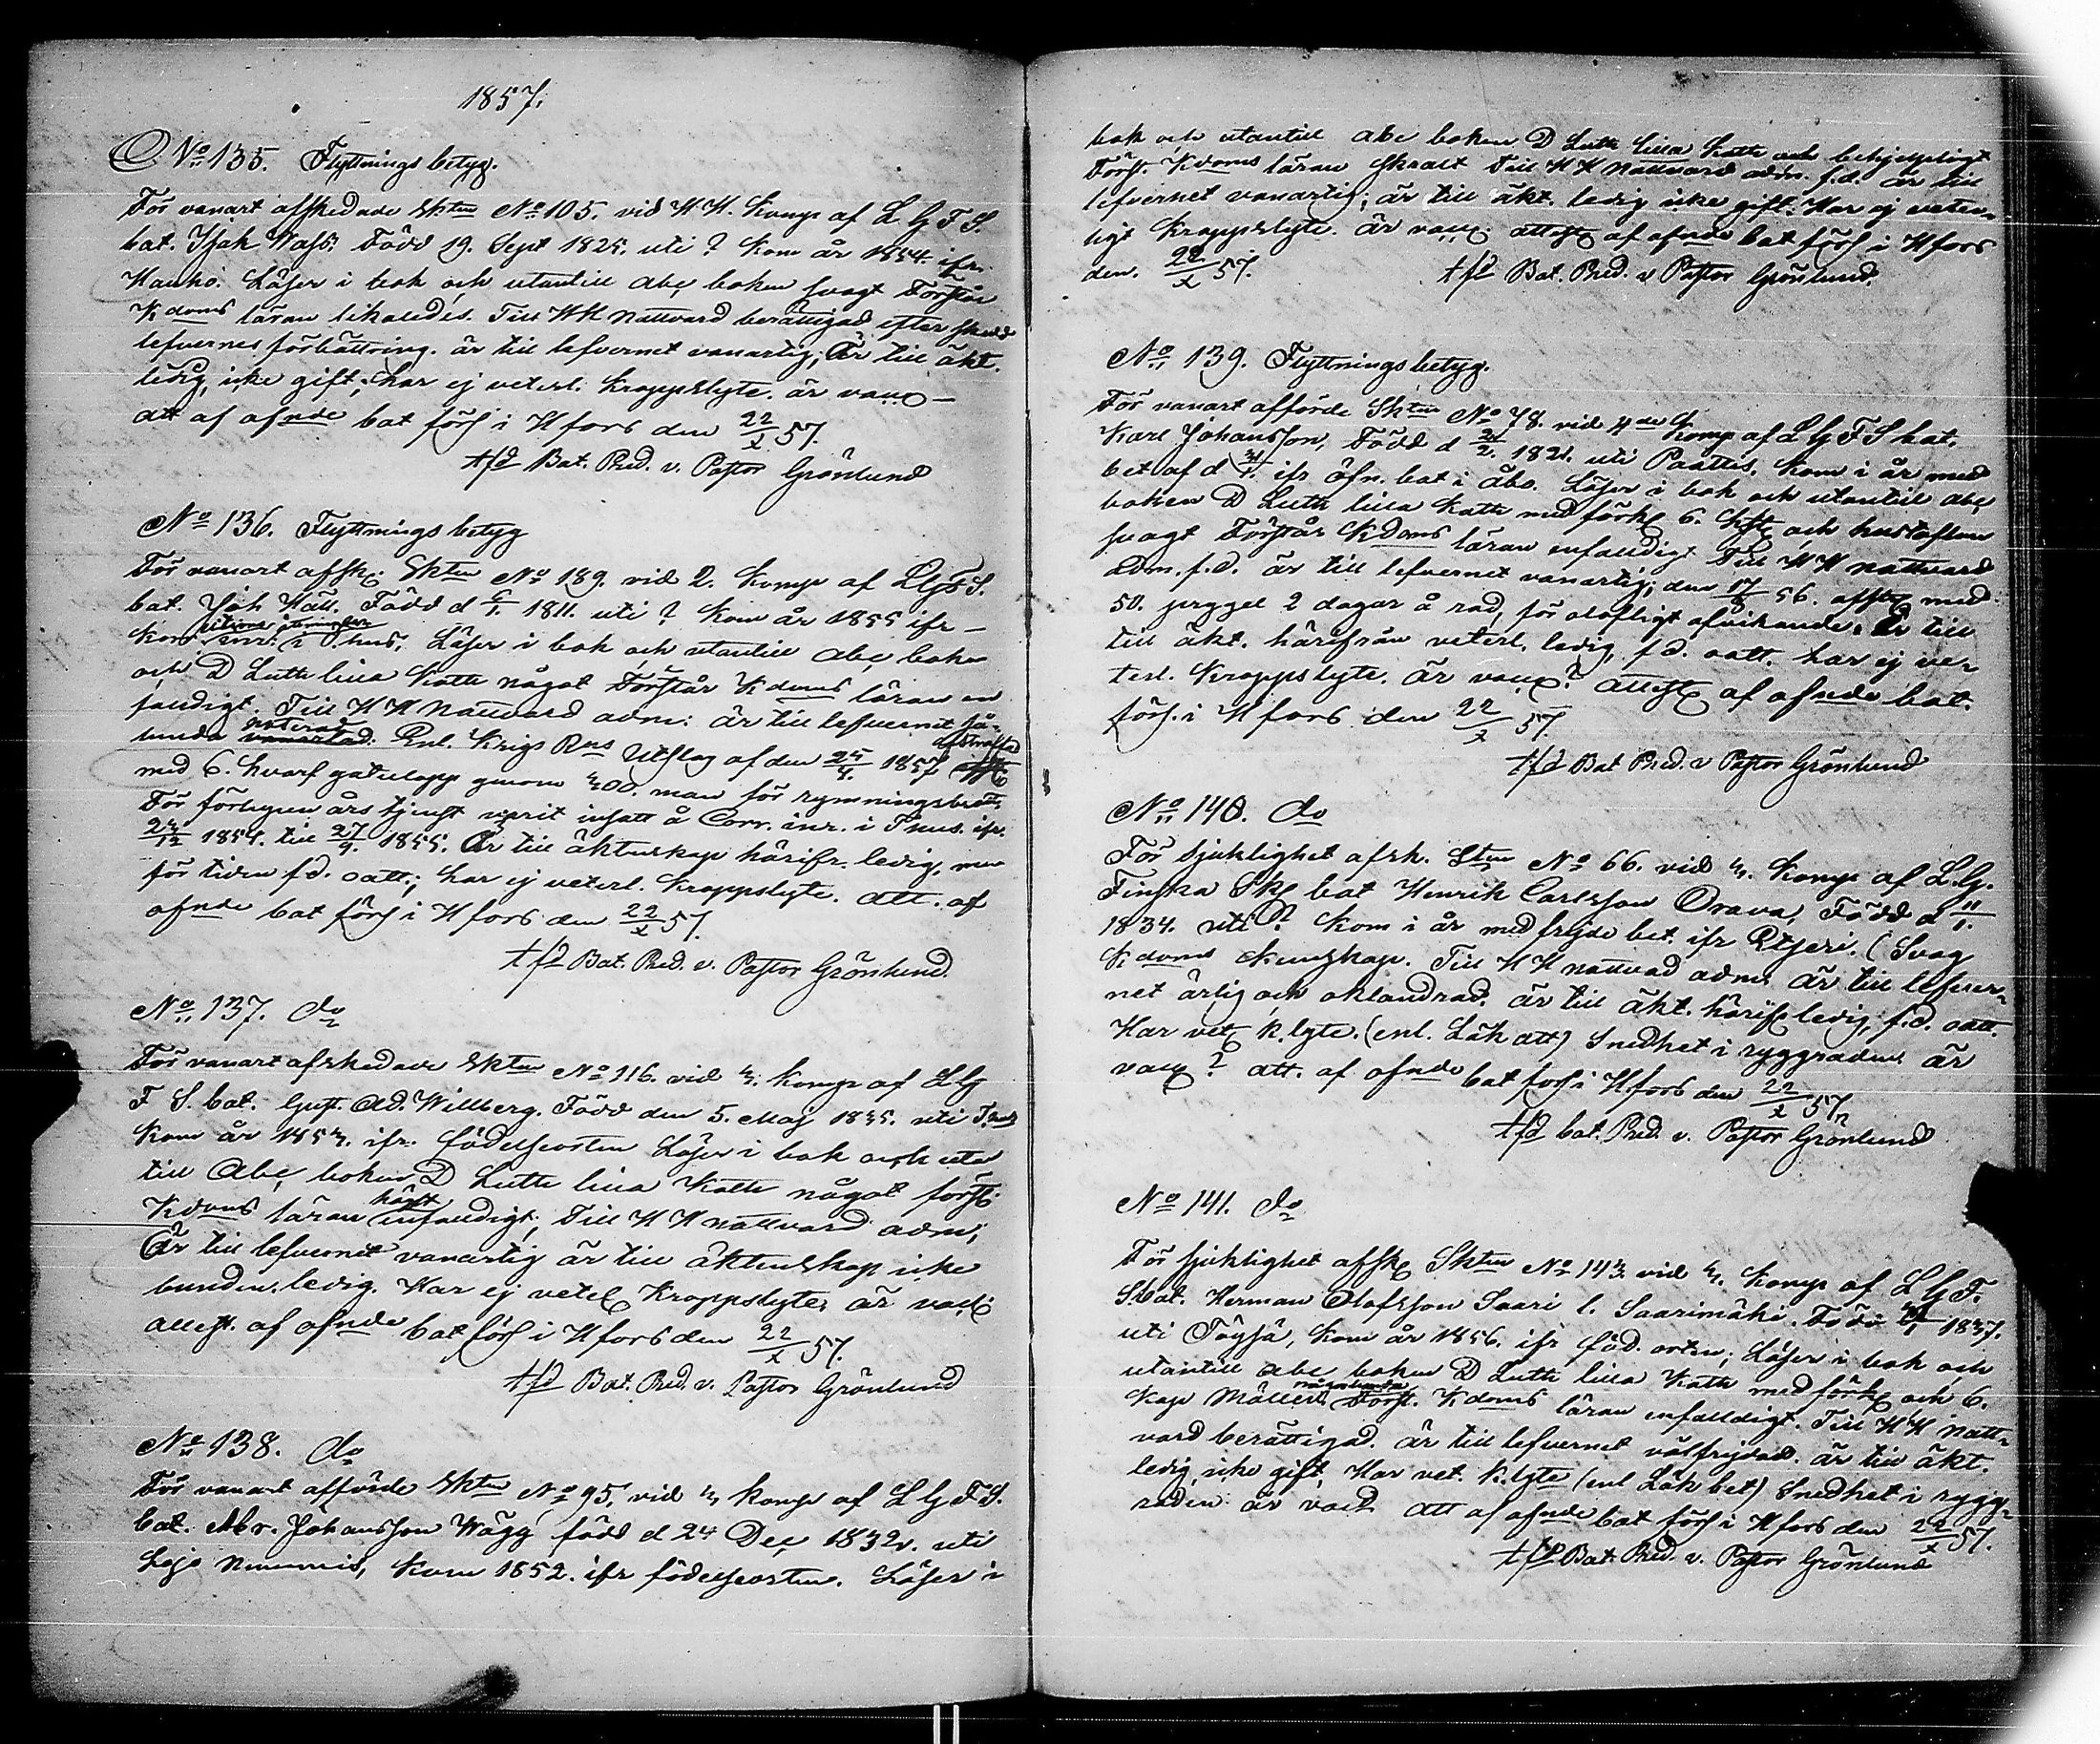 1857.
No 135. Flyttnings betyg.
För vanart afskedade Skten No 105. vid H K. Komp af L G F S.
bat. Isak Wass. Född 19. Sept 1825. uti ? Kom år 1854. ifr.
Hauho. Läser i bok och utantill abc boken svagt Förstår
Kdoms läran likaledes. Till HH Nattvard berättigad efter skedd
lefvernes förbättring. är till lefvernet vanartig; Är till äkt.
ledig, icke gift; har ej veterl. Kroppslyte. är vacc
att af ofnde bat förs i Hfors den 22/X 57.
tfd Bat. Pred. v. Pastor Grönlund
No 136. Flyttnings betyg
För vanart afsk. Skten No 189. vid 2. Komp af LGFS.
bat. Joh Häll. Född d 6/1. 1811. uti ? Kom år 1855 ifr
Korr. inr. i T.hus. Läser i bok och utantill abc boken
och D Luth lilla Katk något Förstår Kdoms läran en
faldigt. Till H H Nattvard adm: är till lefvernet så-
lunda noterad: Enl. Krigs Rns Utslag af den 25/4. 1857 afstraffad
med 6. hvarf gatulopp genom 400. man för rymningsbrott.
För förlupen års tjenst varit insatt å Corr. inr. i Thus. ifr.
24/12 1854. till 27/9. 1855. Är till äktenskap härifr. ledig, men
för tiden f.d. oatt; har ej veterl. Kroppslyte. att. af
ofnde bat förs i Hfors den 22/X 57.
tfd Bat. Pred. v. Pastor Grönlund.
No 137. do
För vanart afskedade Skten No 116. vid 4. Komp af LG
F S. bat. Gust. Ad. Willberg. Född den 5. Maj 1835. uti T.hus
Kom år 1854. ifr. födelseorten Läser i bok och utan
till Abc boken, D Luth lilla Katk något först.
Kdoms läran högst enfaldigt; Till H H Nattvard adm;
Är till lefvernet vanartig är till äktenskap icke
bunden, ledig. Har ej vetel Kroppslyte; är vac:
attest. af ofnde bat förs i Hfors den 22/X 57.
tfd Bat. Pred. v. Pastor Grönlund
No 138. do
För vanart afförde Skten No 95. vid 4 Komp af L G F S.
bat. Abr. Johansson Wägg född d 24 Dec 1832. uti
Lojo Nummis, Kom 1852. ifr födelseorten. Läser i
bok och utantill abc boken D Luth lilla Katk och behjelpligt
Först. Kdoms läran skralt Till H H Nattvard adm. f.d. är till
lefvernet vanartig; är till äkt. ledig icke gift. Har ej veter-
ligt Kroppslyte. är vacc: attest af ofnde bat förs i Hfors
den. 22/X 57.
tfd Bat. Pred. v Pastor Grönlund.
No 139. Flyttnings betyg.
För vanart afförde Skten No 78. vid 4de Komp af LGFS bat.
Karl Johansson, Född d 2/2. 1821. uti Paattis. Kom i år med
bet af d ifr öfn. bat i Åbo. Läser i bok och utantill abc
boken D Luth lilla Katk med förkl 6. Kst och hustaflan
svagt Förstår Kdoms läran enfaldigt Till H H Nattvard
adm. f.d. är till lefvernet vanartig; den 17/8 56. affst med
50. prygel 2 dagar å rad, för olofligt afvikande. Är till
till äkt. härifrån veterl. ledig, f d. oatt. har ej ve-
terl. Kroppslyte. är vacc ? attest af ofnde bat.
förs. i Hfors den 22/X 57.
tfd Bat Pred. v Pastor Grönlund
No 140. do
För sjuklighet afsk. Skten No 66. vid 4. Komp af L.G.
Finska Sk bat Henrik Carlsson Orava, Född d 11/1.
1834. uti ? Kom i år med frejde bet. ifr Etseri. (Svag
Kdoms Kunskap. Till H H nattvad adm. är till lefver-
net ärlig och oklandrad. är till äkt. härifr ledig, f.d. oatt.
Har vet K.lyte. (enl. Läk att) Snedhet i ryggraden är
vacc ? att. af ofnde bat förs i Hfors den 22/X 57.
tfd bat. Pred. v. Pastor Grönlund
No 141. do
För sjuklighet afsk Skten No 143 vid 4. Komp af L G F.
S.bat. Herman Olofsson Saari l. Saarimäki. Född 1837.
uti Töysä, Kom år 1856. ifr föd. orten; Läser i bok och
utantill abc boken D Luth lilla Katk med förkl och 6.
Kap Möller. Först. Kdoms läran enfaldigt. Till H H Natt-
vard berättigad. är till lefvernet välfrejdad. är till äkt.
ledig, icke gift, Har vet. K.lyte (enl Läk bet) Snedhet i rygg-
raden. är vacc att af ofnde bat förs i Hfors den 22/X 57.
tfd Bat. Pred. v. Pastor Grönlund